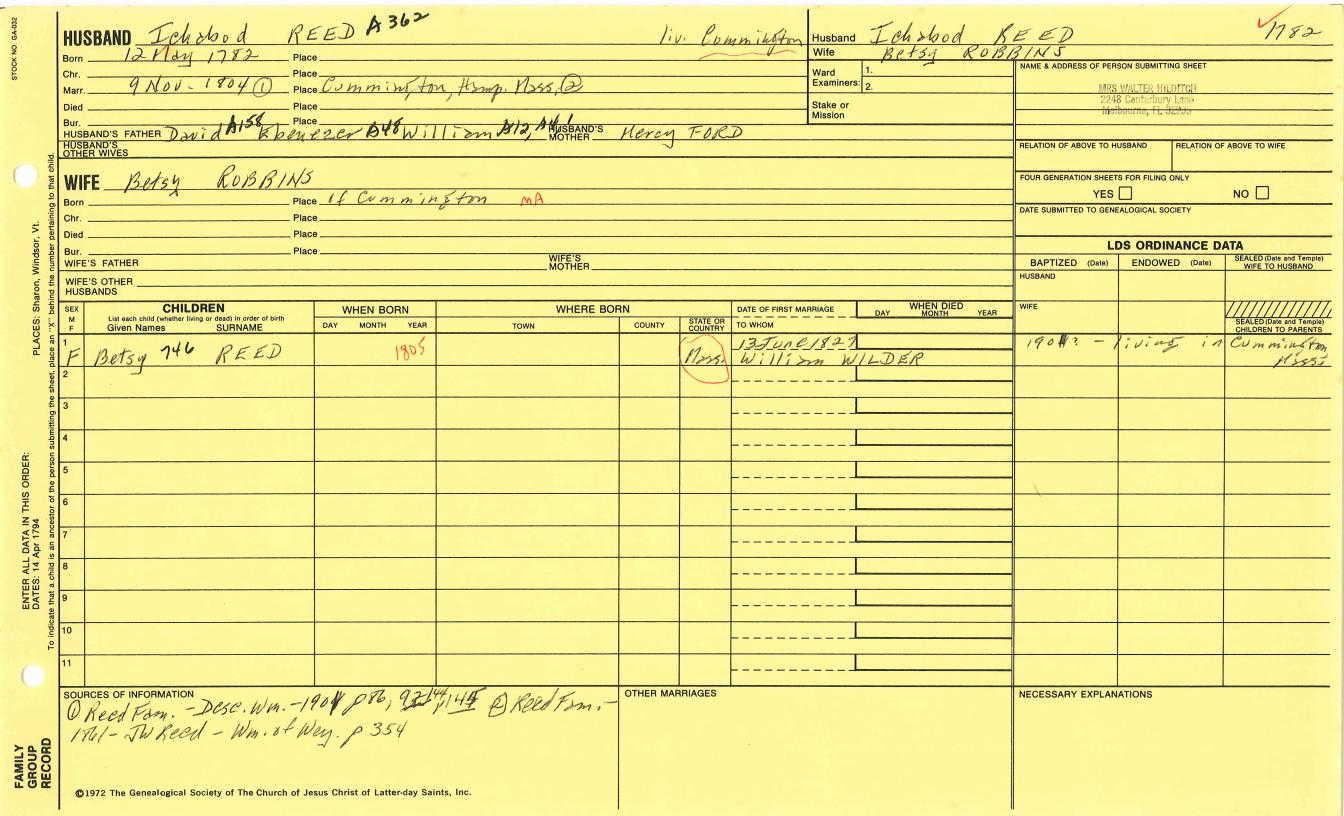 STOCK NO. GA-032
HUSBAND Ichabod REED A362 liv. Cummington
Born 12 May 1782 Place
Chr. Place
Marr. 9 Nov. 1804 ① Place Cummington, Hamp. Mass, ②
Died Place
Bur. Place
HUSBAND'S FATHER David A158 Ebenezer A48 William A12, HUSBAND'S MOTHER Mercy FORD
HUSBAND'S OTHER WIVES
Husband Ichabod REED 1782
Wife Betsy ROBBINS
Ward Examiners: 1.
2.
Stake or Mission
NAME & ADDRESS OF PERSON SUBMITTING SHEET
MRS WALTER HILDITCH
2248 Canterbury Lane
Melbourne, FL
RELATION OF ABOVE TO HUSBAND RELATION OF ABOVE TO WIFE
FOUR GENERATION SHEETS FOR FILING ONLY
YES NO
DATE SUBMITTED TO GENEALOGICAL SOCIETY
WIFE Betsy ROBBINS
Born Place of Cummington MA
Chr. Place
Died Place
Bur. Place
WIFE'S FATHER WIFE'S MOTHER
WIFE'S OTHER HUSBANDS
LDS ORDINANCE DATA
BAPTIZED (Date) ENDOWED (Date) SEALED (Date and Temple) WIFE TO HUSBAND
HUSBAND
WIFE
SEALED (Date and Temple) CHILDREN TO PARENTS
SEX M F
CHILDREN
List each child (whether living or dead) in order of birth
Given Names SURNAME
WHEN BORN
DAY MONTH YEAR
WHERE BORN
TOWN COUNTY STATE OR COUNTRY
DATE OF FIRST MARRIAGE
TO WHOM
WHEN DIED
DAY MONTH YEAR
1 13 June 1827
F Betsy 746 REED 1805 Mass. William WILDER
190 ? - living in Cummington
Mass
2
3
4
5
6
7
8
9
10
11
SOURCES OF INFORMATION
① Reed Fam. - Desc. Wm. - 1901 p 86, ② Reed Fam. -
1861 - JW Reed - Wm. of Wey. p 354
OTHER MARRIAGES
NECESSARY EXPLANATIONS
©1972 The Genealogical Society of The Church of Jesus Christ of Latter-day Saints, Inc.
FAMILY GROUP RECORD
ENTER ALL DATA IN THIS ORDER:
DATES: 14 Apr 1794
PLACES: Sharon, Windsor, Vt.
To indicate that a child is an ancestor of the person submitting the sheet, place an "X" behind the number pertaining to that child.